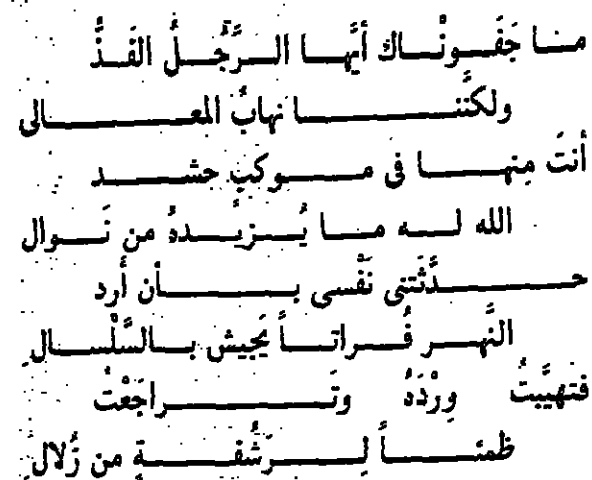 ما جَفَوْناك أيُّها الرَّجُلُ الفَذُّ
ولكنَّنا نهابُ المعالى
أنتَ مِنها فى موكبٍ حشد
الله له ما يُزيدهُ من نَوال
حدَّثَتنى نَفْسى بأن أَرد
النَّهر فُراتاً يَجيش بالسَّلْسال
فتهيَّبتُ وِرْدَهُ وتَراجَعْتُ
ظمئاً لِرَشْفةٍ من زُلال